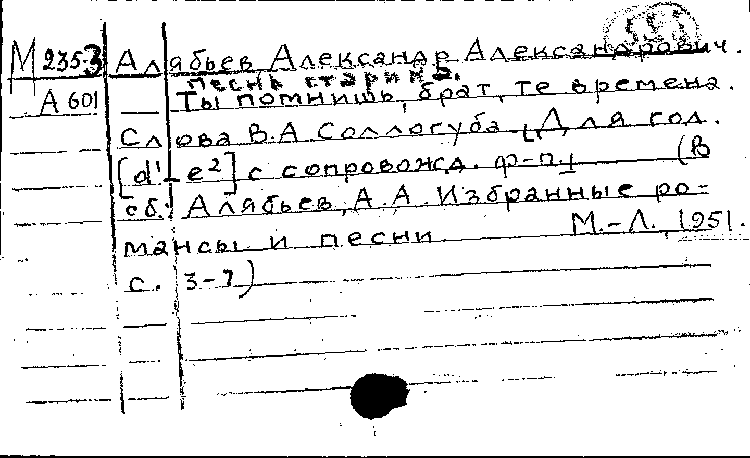 М 2353 Алябьев Александр Александрович.
Песнь старика.
А 601 Ты помнишь, брат, те времена.
Слова В.А. Соллогуба. Для гол.
[d¹- e²] с сопровожд. ф-п. (В
сб.: Алябьев, А.А. Избранные ро=
мансы и песни М.-Л. 1951.
с. 3-7)